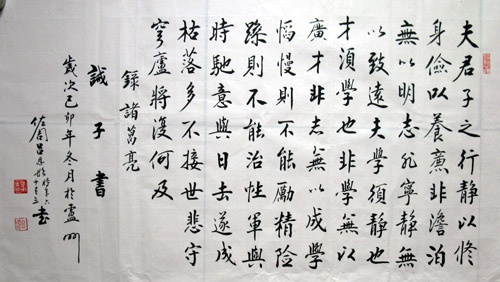 夫君子之行靜以修
身儉以養廉非澹泊
無以明志非寧靜無
以致遠夫學須靜也
才須學也非學無以
廣才非志無以成學
慆慢則不能勵精險
躁則不能治性年與
時馳意與日去遂成
枯落多不接世悲守
窮廬將復何及
錄諸葛亮
誡子書
歲次己卯年冬月於盧州